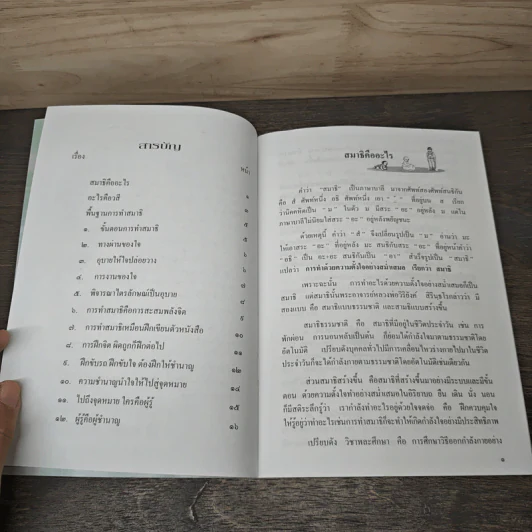 สารบัญ
เรื่อง
หน้า
สมาธิคืออะไร
๑
อะไรคือวสี
พื้นฐานการทำสมาธิ
๑. ขั้นตอนการทำสมาธิ
๒. ทางผ่านของใจ
๓. อุบายให้ใจปล่อยวาง
๔. การงานของใจ
๕. พิจารณาไตรลักษณ์เป็นอุบาย
๖. การทำสมาธิคือการสะสมพลังจิต
๗. การทำสมาธิเหมือนฝึกเขียนตัวหนังสือ
๘. การฝึกจิต ผิดถูกก็ฝึกต่อไป
๑๒
๙. ฝึกขับรถ ฝึกขับใจ ต้องฝึกให้ชำนาญ
๑๒
๑๐. ความชำนาญนำใจให้ไปสู่จุดหมาย
๑๔
๑๑. ไปถึงจุดหมาย ใครคือผู้รู้
๑๕
๑๒. ผู้รู้คือผู้ชำนาญ
๑๖
สมาธิคืออะไร
คำว่า "สมาธิ" เป็นภาษาบาลี มาจากศัพท์สองศัพท์สนธิกัน
คือ สํ ศัพท์หนึ่ง อธิ ศัพท์หนึ่ง เอา ที่อยู่บน ส เรียก
ว่านิคคหิตเป็น "ม" ในตัว ม มีสระ "อะ" อยู่หลัง ม แต่ใน
ภาษาบาลีไม่นิยมใส่สระ "อะ" อยู่หลังพยัญชนะ
ด้วยเหตุนี้ คำว่า "สํ" จึงเปลี่ยนรูปเป็น "ม" อ่านว่า มะ
ให้เอาสระ "อะ" ที่อยู่หลัง มะ สนธิกับสระ "อะ" ที่อยู่หน้าคำว่า
"อธิ" เป็น อะ+อะ สนธิกันเป็น "อา" สำเร็จรูปเป็น "สมาธิ"
แปลว่า การทำด้วยความตั้งใจอย่างสม่ำเสมอ เรียกว่า สมาธิ
เพราะฉะนั้น การทำอะไรด้วยความตั้งใจอย่างสม่ำเสมอก็เป็น
สมาธิ แต่สมาธินั้นพระอาจารย์หลวงพ่อวิริยังค์ สิรินฺธโรกล่าวว่า มี
สองแบบ คือ สมาธิแบบธรรมชาติ และสามธิแบบสร้างขึ้น
สมาธิธรรมชาติ คือ สมาธิที่มีอยู่ในชีวิตประจำวัน เช่น การ
พักผ่อน การนอนหลับเป็นต้น ก็ย่อมได้กำลังใจมาตามธรรมชาติโดย
อัตโนมัติ เปรียบดังบุคคลทั่วไปมีการเคลื่อนไหวร่างกายไปมาในชีวิต
ประจำวันก็จะได้กำลังกายตามธรรมชาติโดยอัตโนมัติเช่นเดียวกัน
ส่วนสมาธิสร้างขึ้น คือสมาธิที่สร้างขึ้นมาอย่างมีระบบและมีขั้น
ตอน ด้วยความตั้งใจทำอย่างสม่ำเสมอในอิริยาบถ ยืน เดิน นั่ง นอน
ก็มีสติระลึกรู้ว่า เรากำลังทำอะไรอยู่ด้วยใจจดจ่อ คือ ฝึกควบคุมใจ
ให้รู้อยู่ว่าทำอะไรเช่นการทำสมาธิก็จะทำให้เกิดกำลังใจอย่างมีประสิทธิภาพ
เปรียบดัง วิชาพละศึกษา คือ การศึกษาวิธีออกกำลังกายอย่าง
๑